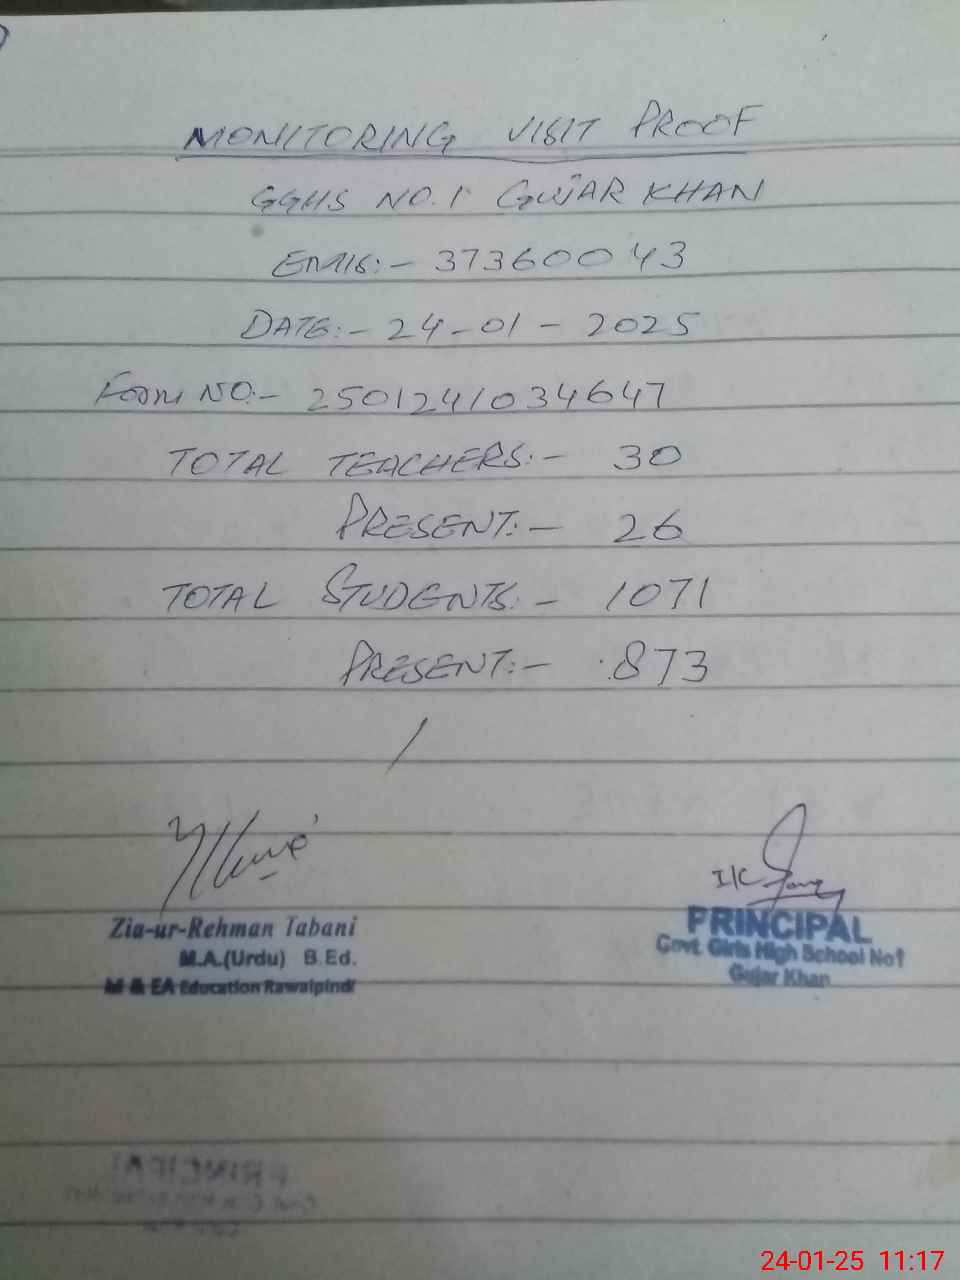 MONITORING VISIT PROOF
GGHS NO.1 GUJAR KHAN
EMIS:- 37360043
DATE:- 24-01-2025
Form NO:- 2501241034647
TOTAL TEACHERS:- 30
PRESENT:- 26
TOTAL STUDENTS:- 1071
PRESENT:- 873
I/C
Zia-ur-Rehman Tabani
M.A.(Urdu) B.Ed.
M & EA Education Rawalpindi
PRINCIPAL
Govt. Girls High School No1
Gujar Khan
PRINCIPAL
24-01-25 11:17